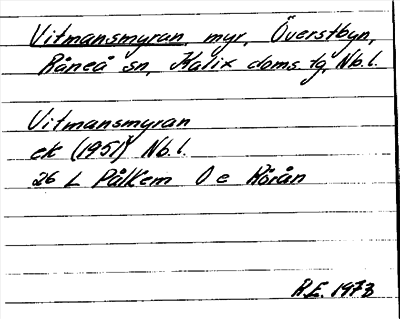 Vitmansmyran, myr, Överstbyn,
Råneå sn, Kalix doms. tg, Nb. l.
Vitmansmyran
ek (1951) Nb. l.
26 L Pålkem 0 e Rörån
R.E. 1973